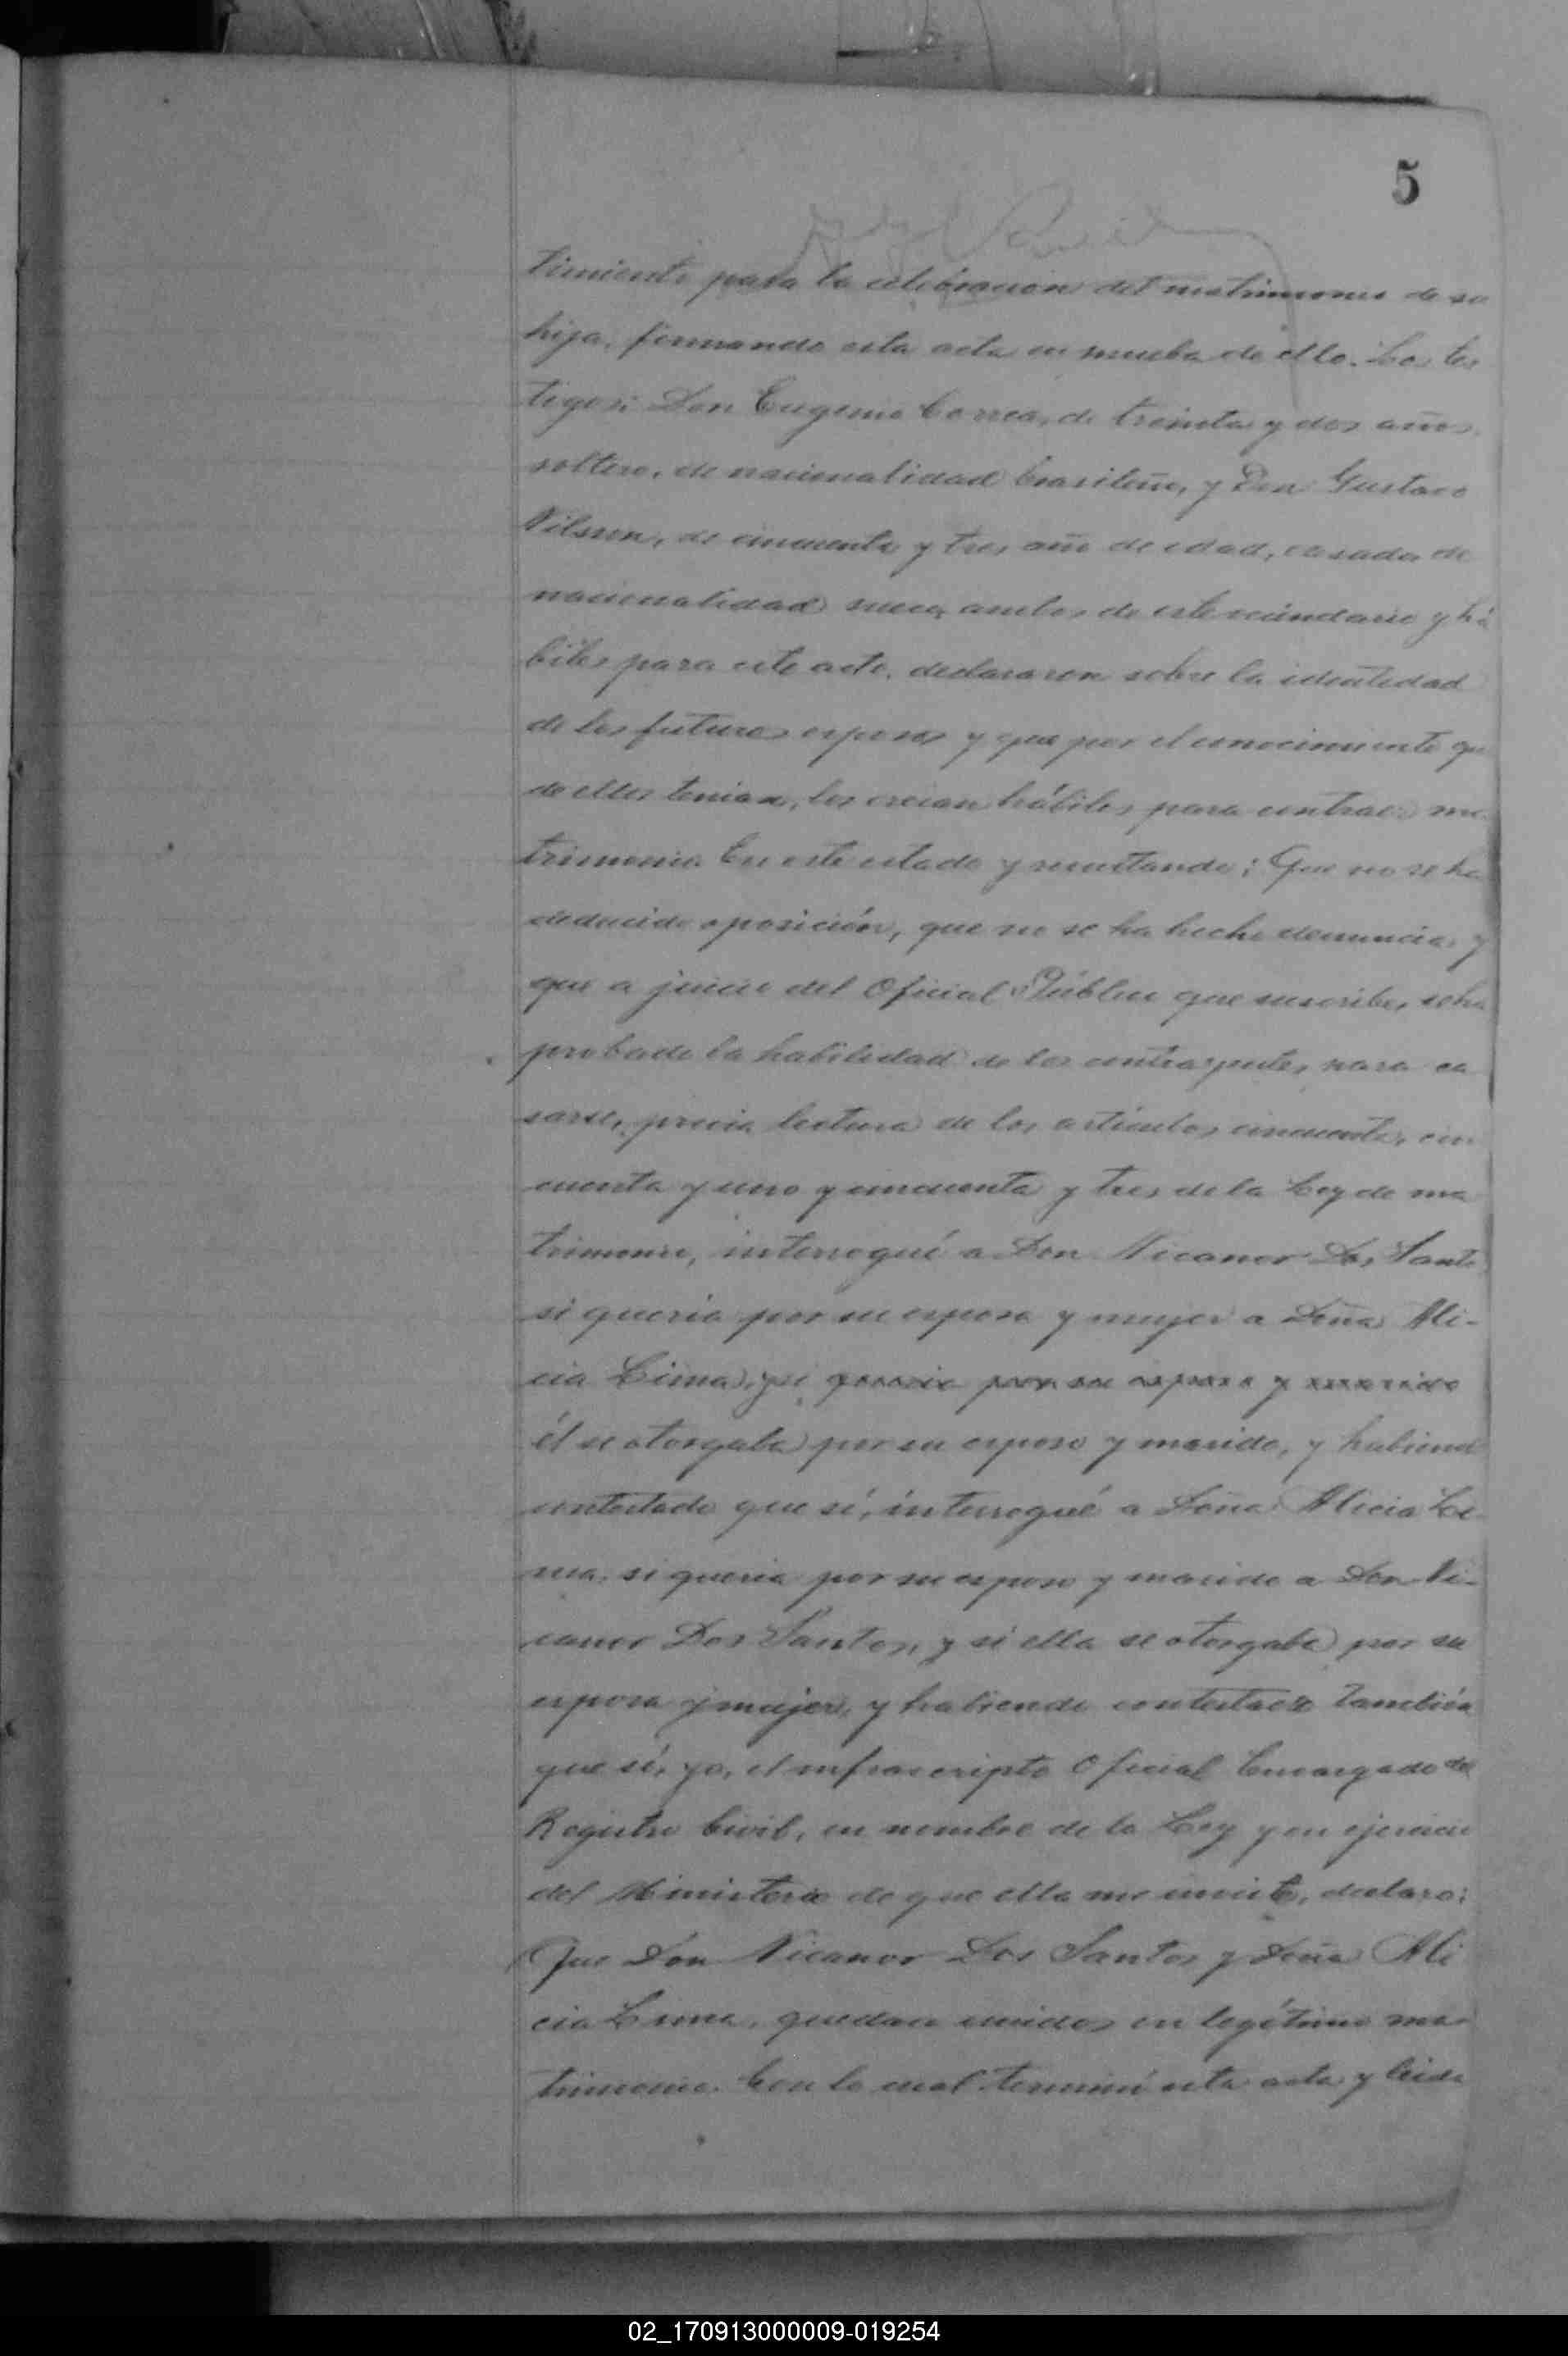 5
timiento para la celebración del matrimonio de su
hija, firmando esta acta en prueba de ello. Los tes
tigos: Don Eugenio Correa, de treinta y dos años,
soltero, de nacionalidad brasileña, y Don Gustavo
Nilsson, de cincuenta y tres año de edad, casado, de
nacionalidad sueca, ambos de este vecindario y há
biles para este acto, declararon sobre la identidad
de los futuros esposos y que por el conocimiento que
de ellos tenian, los creian hábiles para contraer ma
trimonio. En este estado y resultando: Que no se ha
deducido oposición, que no se ha hecho denuncia, y
que a juicio del Oficial Público que suscribe, se ha
probado la habilidad de los contrayentes para ca
sarse, previa lectura de los artículos cincuenta, cin
cuenta y uno y cincuenta y tres de la Ley de ma
trimonio, interrogué a Don Nicanor Dos Santos
si queria por su esposa y mujer a Doña Ali-
cia Lima, y si queria por su esposo y marido
él se otorgaba por su esposo y marido, y habiendo
contestado que sí, interrogué a Doña Alicia Li
ma, si queria por su esposo y marido a Don Ni-
canor Dos Santos, y si ella se otorgaba por su
esposa y mujer, y habiendo contestado también
que sí, yo, el infrascripto Oficial Encargado del
Registro Civil, en nombre de la Ley y en ejercicio
del Ministerio de que ella me inviste, declaro:
Que Dón Nicanor Dos Santos y Doña Ali
cia Lima, quedan unidos en legítimo ma
trimonio. Con lo cual terminó esta acta y leida
02_170913000009-019254